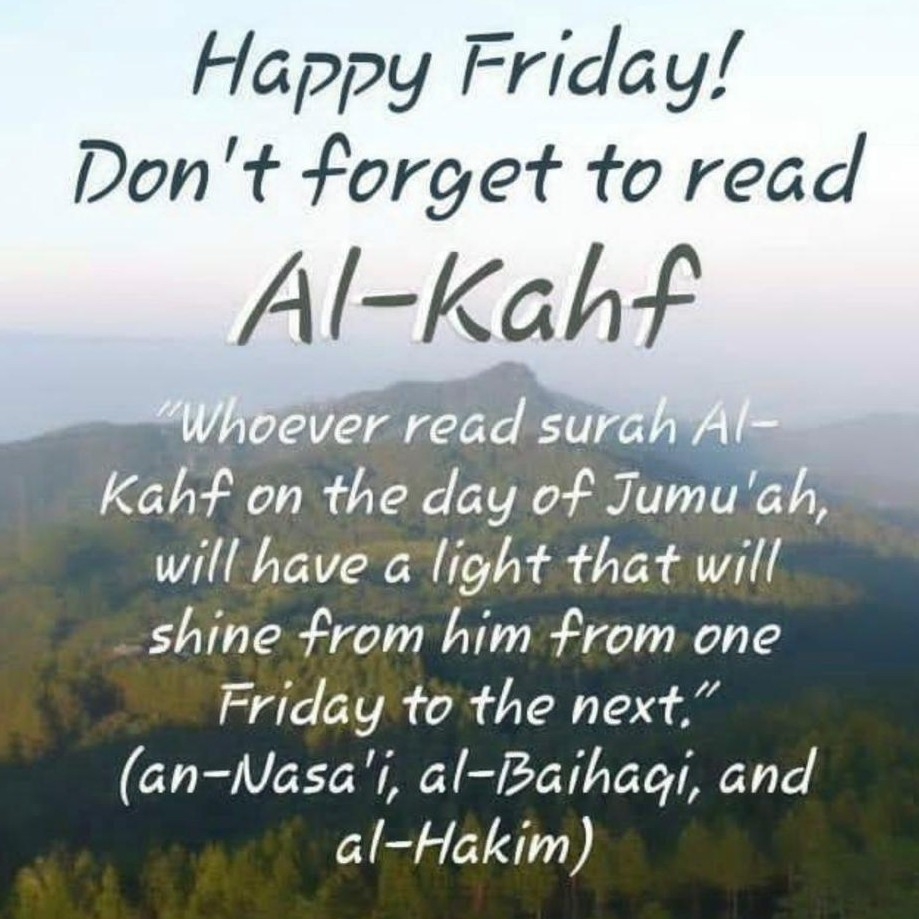 Happy Friday!
Don't forget to read
Al-Kahf
"Whoever read surah Al-
Kahf on the day of Jumu'ah,
will have a light that will
shine from him from one
Friday to the next."
(an-Nasa'i, al-Baihaqi, and
al-Hakim)